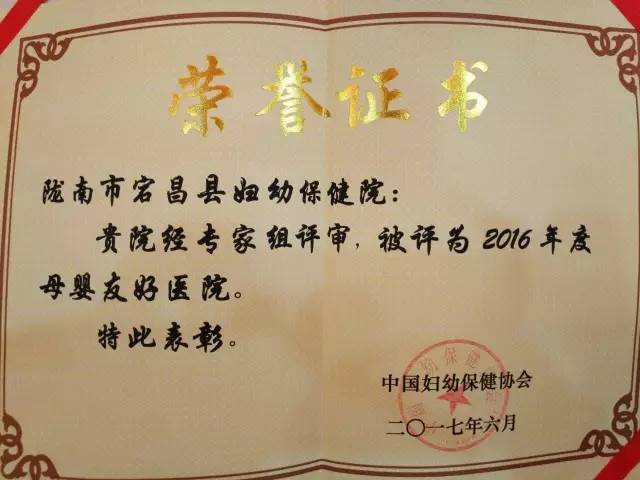 荣誉证书
陇南市宕昌县妇幼保健院：
贵院经专家组评审，被评为2016年度
母婴友好医院。
特此表彰。
中国妇幼保健协会
二〇一七年六月